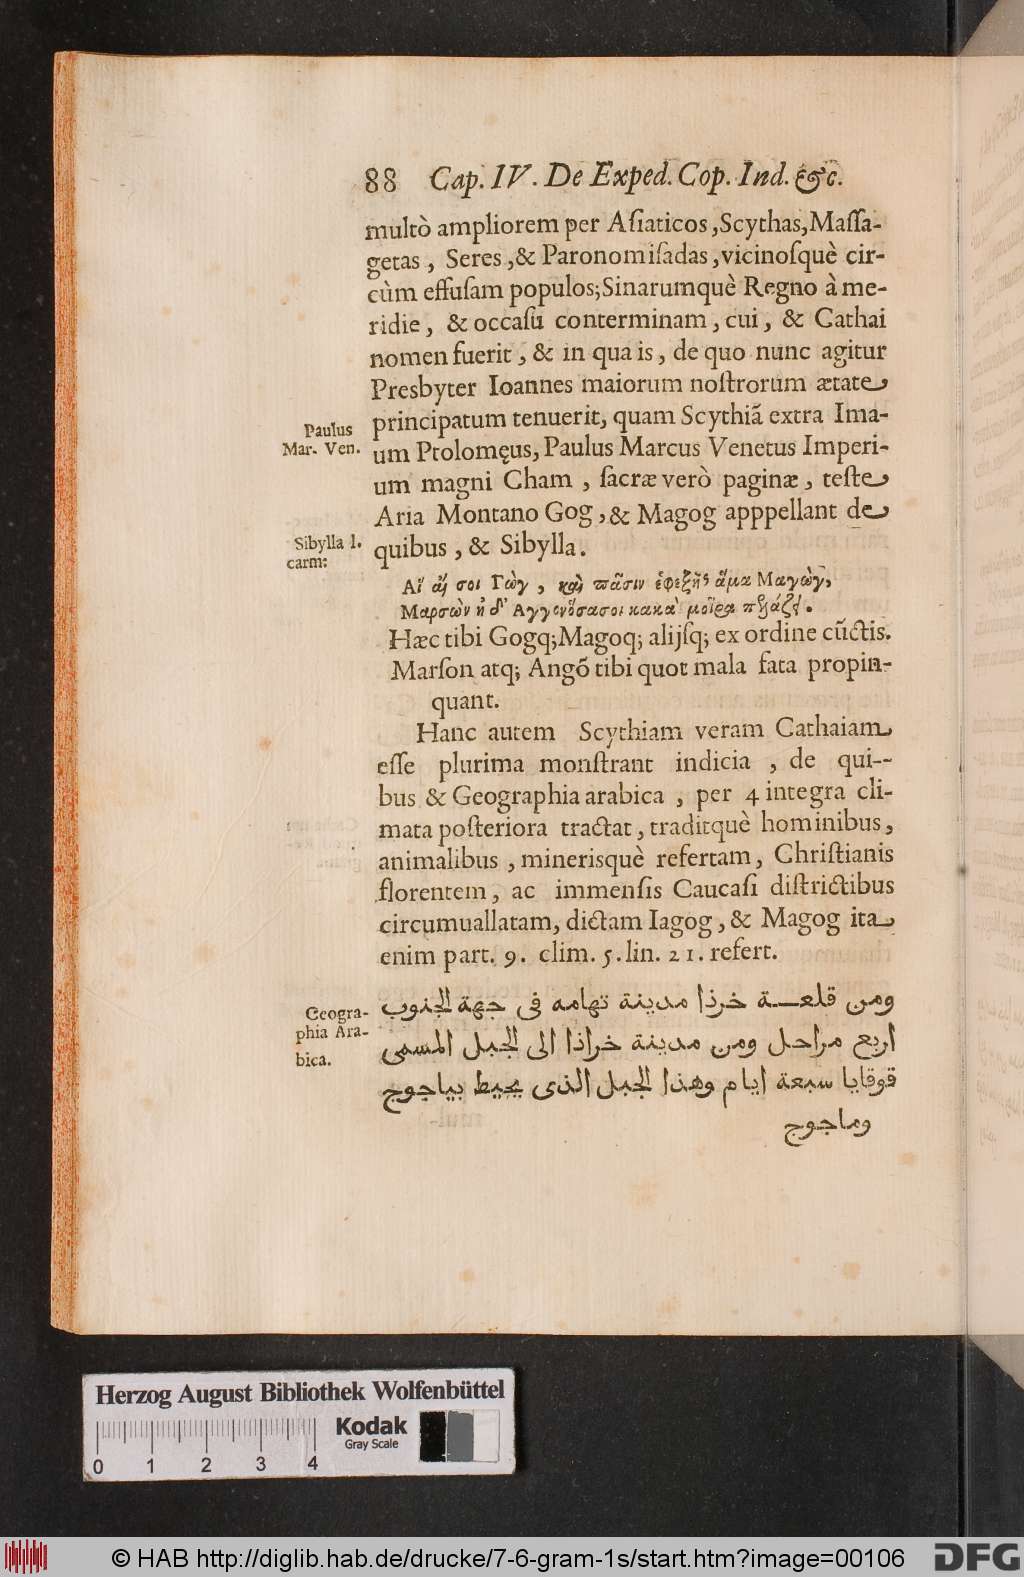 88 Cap. IV. De Exped. Cop. Ind. &c.
multò ampliorem per Asiaticos, Scythas, Massa-
getas, Seres, & Paronomisadas, vicinosquè cir-
cùm effusam populos; Sinarumquè Regno à me-
ridie, & occasu conterminam, cui, & Cathai
nomen fuerit, & in qua is, de quo nunc agitur
Presbyter Ioannes maiorum nostrorum ætate
principatum tenuerit, quam Scythiã extra Ima-
Paulus
Mar. Ven.
um Ptolomęus, Paulus Marcus Venetus Imperi-
um magni Cham, sacræ verò paginæ, teste
Aria Montano Gog, & Magog apppellant de
Sibylla l.
carm:
quibus, & Sibylla.
Αἴ αἴ σοι Γὼγ, καὶ πᾶσιν ἐφεξῆς ἅμα Μαγὼγ,
Μαρσὼν ἠδ' κακὰ μοῖρα
Hæc tibi Gogq; Magoq; alijsq; ex ordine cũctis.
Marson atq; Angõ tibi quot mala fata propin-
quant.
Hanc autem Scythiam veram Cathaiam
esse plurima monstrant indicia, de qui--
bus & Geographia arabica, per 4 integra cli-
mata posteriora tractat, traditquè hominibus,
animalibus, minerisquè refertam, Christianis
florentem, ac immensis Caucasi districtibus
circumuallatam, dictam Iagog, & Magog ita
enim part. 9. clim. 5. lin. 21. refert.
Geogra-
phia Ara-
bica.
ومن قلعـــة خرذا مدينة تهامه فى جهة الجنوب
اربع مراحل ومن مدينة خراذا الى الجبل المسمى
قوقايا سبعة ايام وهذا الجبل الذى يحيط بياجوج
وماجوج
Herzog August Bibliothek Wolfenbüttel
Kodak
Gray Scale
0 1 2 3 4
© HAB http://diglib.hab.de/drucke/7-6-gram-1s/start.htm?image=00106
DFG